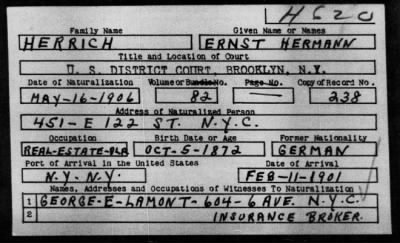 H620
Family Name Given Name or Names
HERRICH ERNST HERMANN
Title and Location of Court
U. S. DISTRICT COURT, BROOKLYN, N.Y.
Date of Naturalization Volume or Bundle No. Page No. Copy of Record No.
MAY-16-1906 82 238
Address of Naturalized Person
451-E 122 ST. N.Y.C.
Occupation Birth Date or Age Former Nationality
REAL-ESTATE-BLR OCT-5-1872 GERMAN
Port of Arrival in the United States Date of Arrival
N.Y. N.Y. FEB-11-1901
Names, Addresses and Occupations of Witnesses To Naturalization
1 GEORGE-E-LAMONT-604-6 AVE. N.Y.C.
2 INSURANCE BROKER.